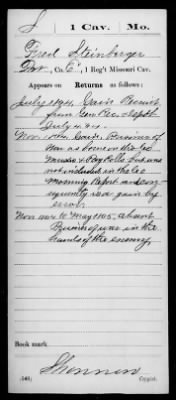 S | 1 Cav. | Mo.
Fred Steinberger
Pvt., Co. E, 1 Reg't Missouri Cav.
Appears on
Returns as follows:
July 1864, Gain Recruit
from Gen Rec Depot
July 4. 64.
Nov 1864 Gain, Prisoner of
War as borne on the Co
Muster & Pay Rolls but was
not included in the Co
Morning Report and con-
sequently no gain by
error.
Nov 1864 to May 1865, absent
Prisoner of war in the
hands of the enemy.
Book mark:
(546)
Copyist.